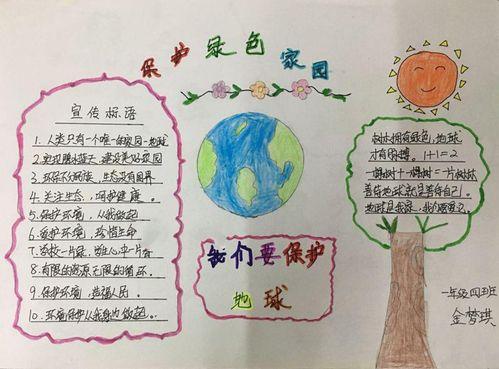 保护绿色家园
宣传标语
1. 人类只有一个唯一的家园-地球
2. 建设美好家园
3. 环保不分民族，生态没有国界
4. 关注生态，呵护健康。
5. 保护环境，从我做起
6. 爱护环境，珍惜生命
7. 一片绿，
8. 有限的资源，无限的循环。
9. 保护环境，造福人民。
10. 环境保护从我身边做起。
我们要保护
地球
树木拥有绿色，地球
才有脉搏。1+1=2
一棵树+一棵树=一片树林
善待地球就是善待自己。
地球是我家，
一年级四班
金梦琪